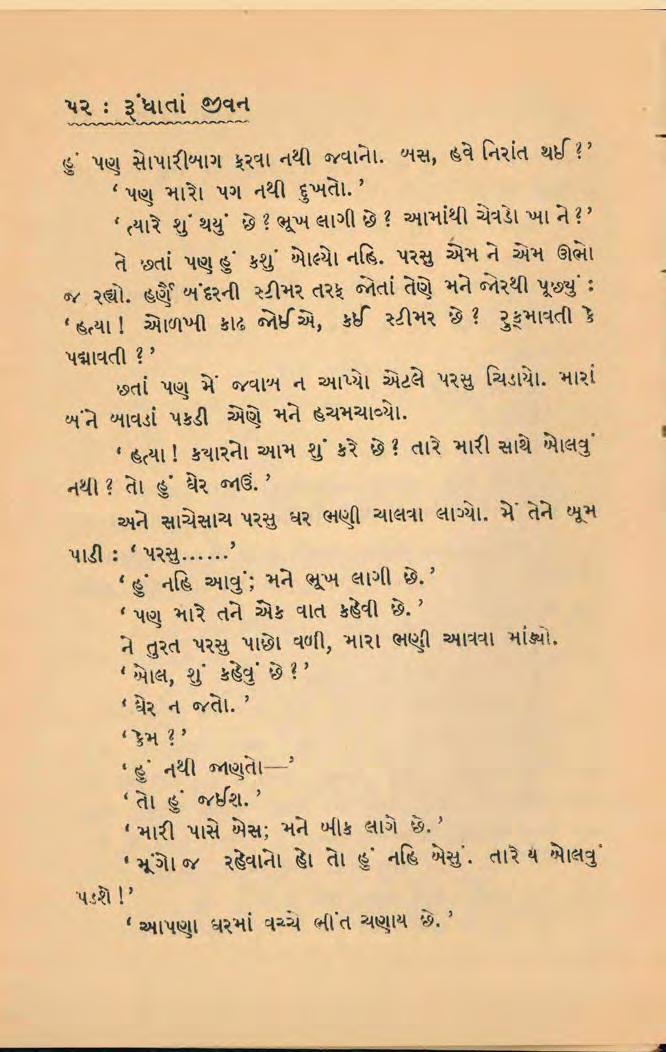 ૫૨ : રૂંધાતાં જીવન
હું પણ સોપારીબાગ ફરવા નથી જવાનો. બસ, હવે નિરાંત થઈ ?’
‘ પણ મારો પગ નથી દુખતો. ’
‘ ત્યારે શું થયું છે ? ભૂખ લાગી છે ? આમાંથી ચેવડો ખા ને ?’
તે છતાં પણ હું કશું બોલ્યો નહિ. પરસુ એમ ને એમ ઊભો
જ રહ્યો. હર્ણૈ બંદરની સ્ટીમર તરફ જોતાં તેણે મને જોરથી પૂછ્યું :
‘ હત્યા ! ઓળખી કાઢ જોઈએ, કઈ સ્ટીમર છે ? રુક્માવતી કે
પદ્માવતી ? ’
છતાં પણ મેં જવાબ ન આપ્યો એટલે પરસુ ચિડાયો. મારાં
બંને બાવડાં પકડી એણે મને હચમચાવ્યો.
‘ હત્યા ! ક્યારનો આમ શું કરે છે ? તારે મારી સાથે બોલવું
નથી ? તો હું ઘેર જાઉં. ’
અને સાચેસાચ પરસુ ઘર ભણી ચાલવા લાગ્યો. મેં તેને બૂમ
પાડી : ‘ પરસુ......’
‘ હું નહિ આવું; મને ભૂખ લાગી છે. ’
‘ પણ મારે તને એક વાત કહેવી છે. ’
ને તુરત પરસુ પાછો વળી, મારા ભણી આવવા માંડ્યો.
‘ બોલ, શું કહેવું છે ? ’
‘ ઘેર ન જતો. ’
‘ કેમ ? ’
‘ હું નથી જાણતો—’
‘ તો હું જઈશ. ’
‘ મારી પાસે બેસ; મને બીક લાગે છે. ’
‘ મૂંગો જ રહેવાનો હો તો હું નહિ બેસું. તારે ય બોલવું
પડશે !’
‘ આપણા ઘરમાં વચ્ચે ભીંત ચણાય છે. ’